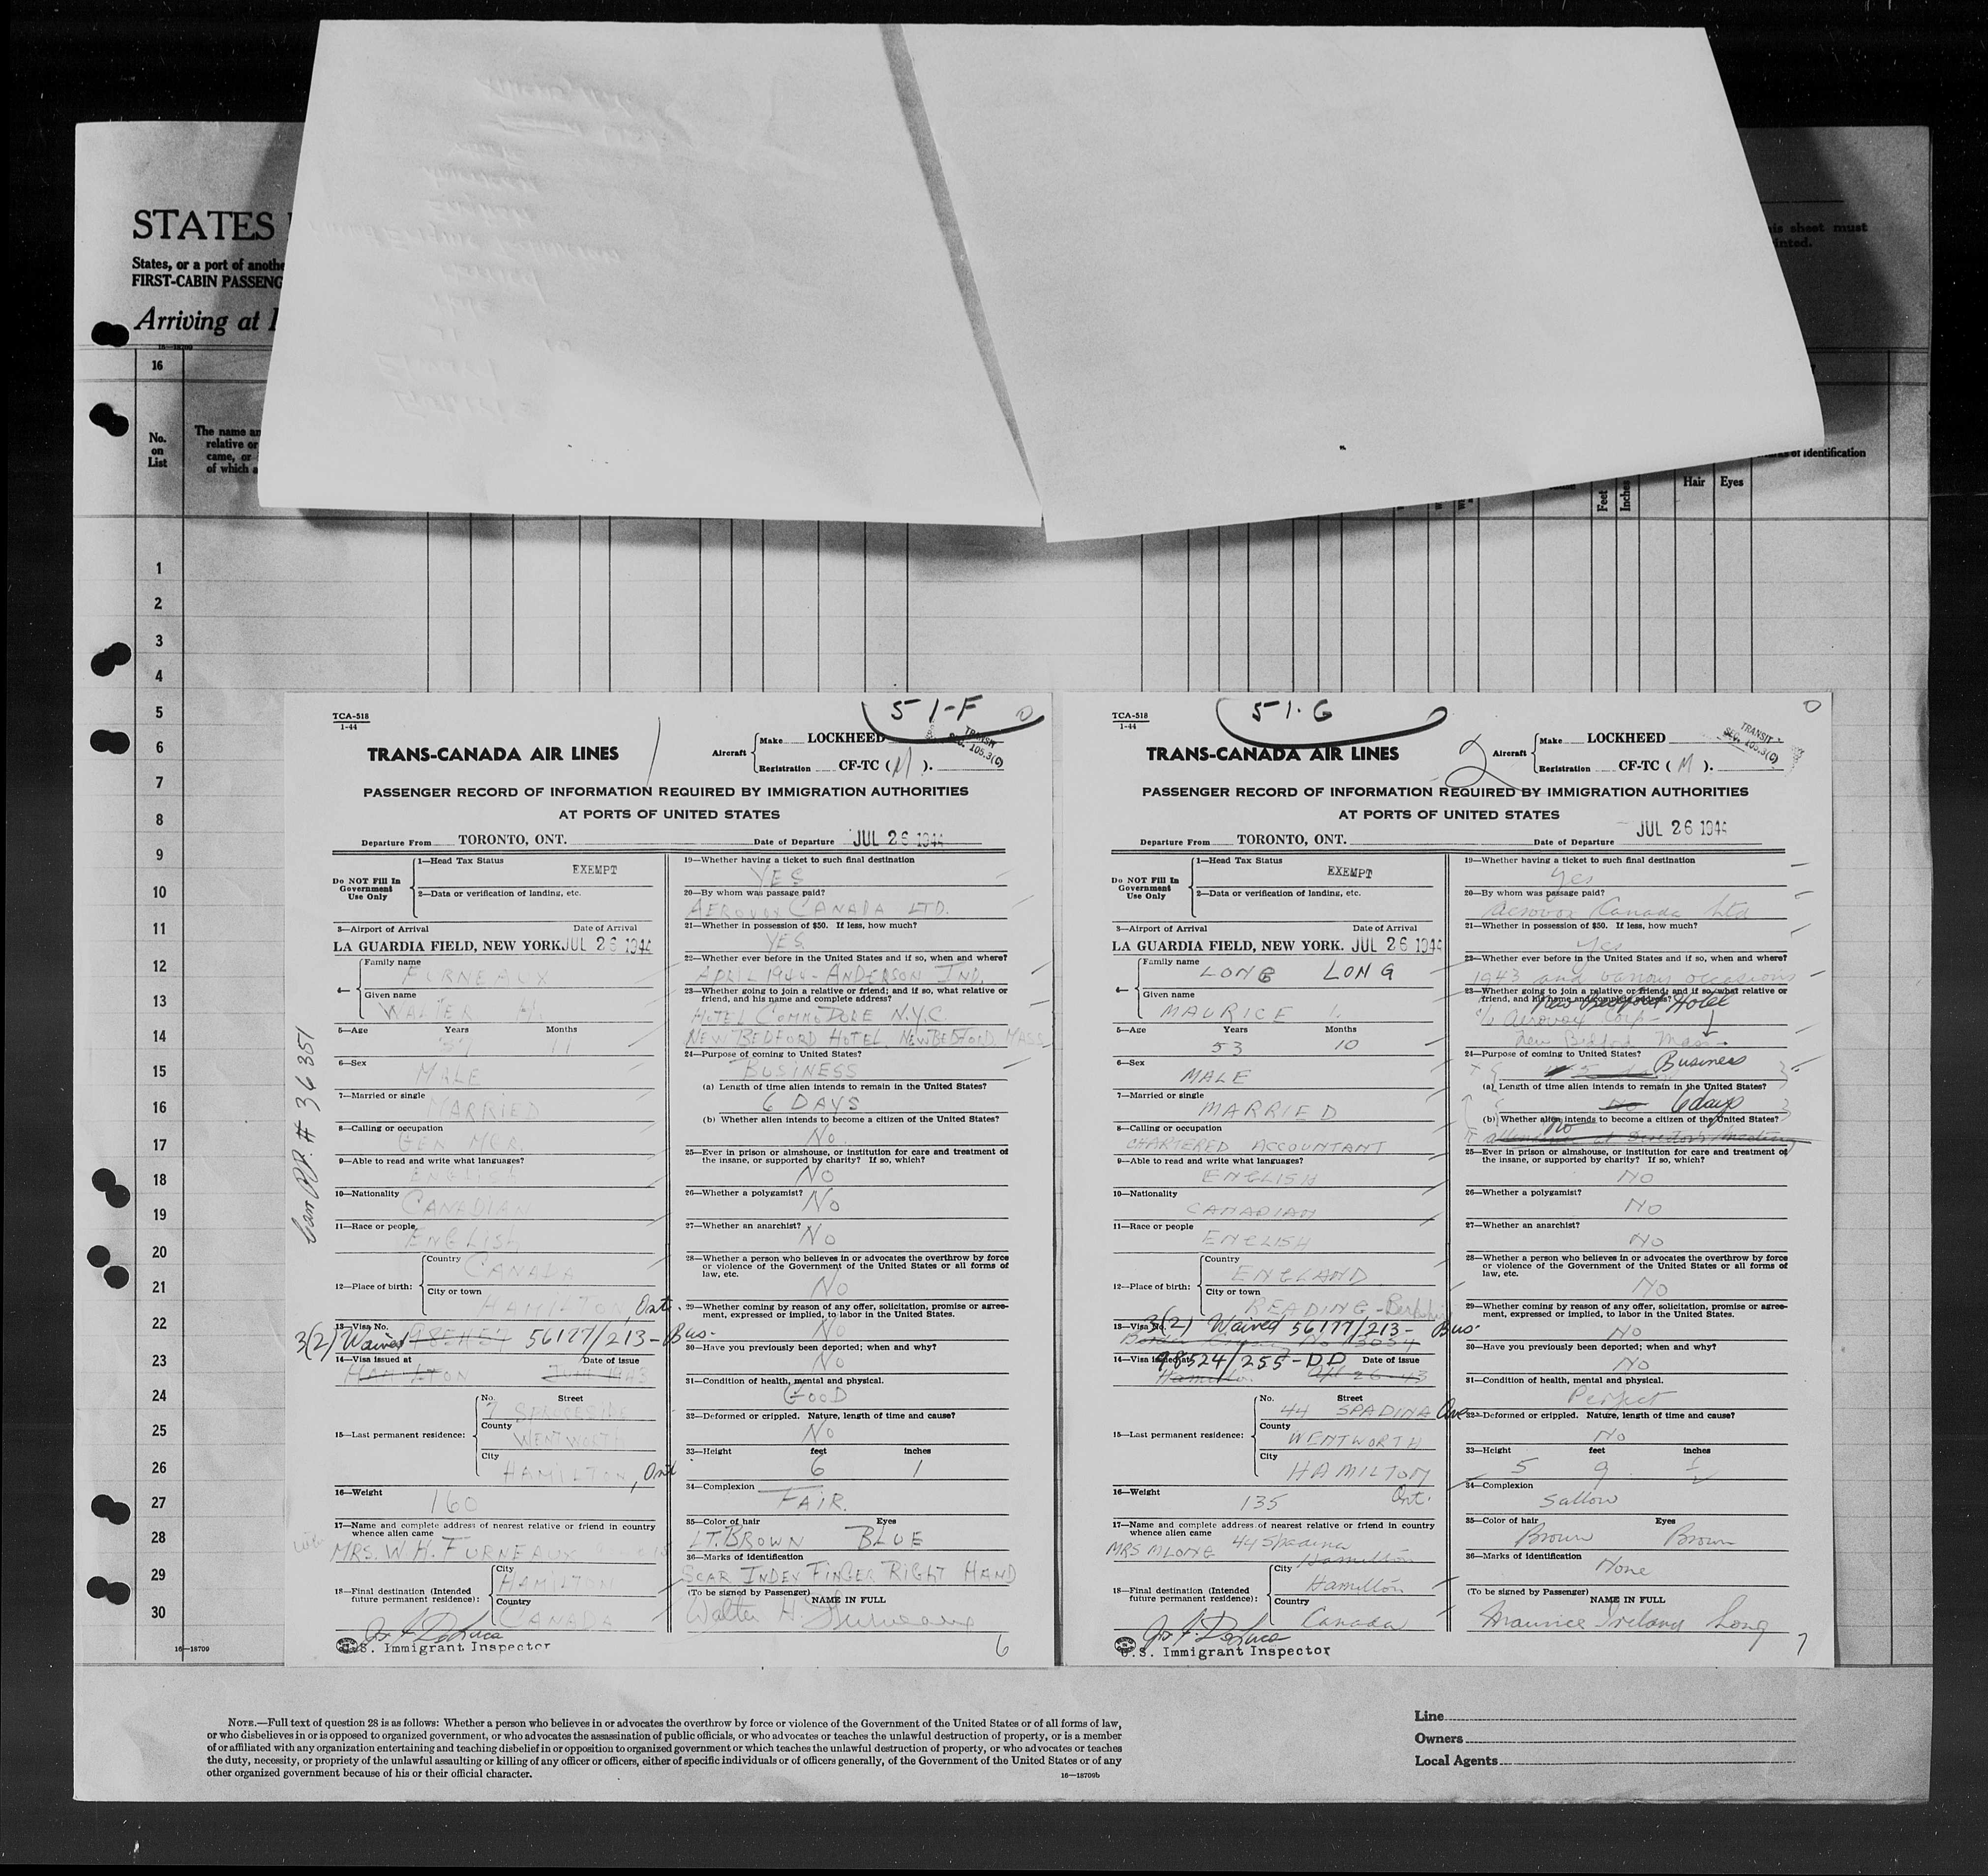 STATES
States, or a port of anothe
FIRST-CABIN PASSENG
Arriving at
is sheet must
inted.
16—18709
16
No.
on
List
The name an
relative or
came, or
of which a
of identification
Feet
Inches
Hair
Eyes
1
2
3
4
5
6
7
8
9
10
11
12
13
14
15
16
17
18
19
20
21
22
23
24
25
26
27
28
29
30
16—18709
Can PP. # 36351
TCA-518
1-44
51-F
TRANS-CANADA AIR LINES
Aircraft
Make LOCKHEED
Registration CF-TC ( M ).
TRANSIT
SEC. 105.3(C)
PASSENGER RECORD OF INFORMATION REQUIRED BY IMMIGRATION AUTHORITIES
AT PORTS OF UNITED STATES
Departure From TORONTO, ONT.
Date of Departure JUL 26 1944
Do NOT Fill In
Government
Use Only
1—Head Tax Status
EXEMPT
2—Data or verification of landing, etc.
3—Airport of Arrival Date of Arrival
LA GUARDIA FIELD, NEW YORK. JUL 26 1944
4—
Family name
FURNEAUX
Given name
WALTER H.
5—Age Years Months
37 11
6—Sex
MALE
7—Married or single
MARRIED
8—Calling or occupation
GEN MGR.
9—Able to read and write what languages?
ENGLISH
10—Nationality
CANADIAN
11—Race or people
ENGLISH
12—Place of birth:
Country
CANADA
City or town
HAMILTON, Ont.
13—Visa No.
3(2) Waived 56177/213-Bus.
14—Visa issued at Date of issue
HAMILTON June 1943
15—Last permanent residence:
No. Street
7
County
WENTWORTH
City
HAMILTON, Ont
16—Weight
160
17—Name and complete address of nearest relative or friend in country
whence alien came
wife
MRS. W.H. FURNEAUX
18—Final destination (Intended
future permanent residence):
City
HAMILTON
Country
CANADA
U.S. Immigrant Inspector
19—Whether having a ticket to such final destination
YES
20—By whom was passage paid?
AEROVOX CANADA LTD.
21—Whether in possession of $50. If less, how much?
YES
22—Whether ever before in the United States and if so, when and where?
APRIL 1944 - ANDERSON IND.
23—Whether going to join a relative or friend; and if so, what relative or
friend, and his name and complete address?
HOTEL COMMODORE N.Y.C.
NEW BEDFORD HOTEL, NEW BEDFORD, MASS
24—Purpose of coming to United States?
BUSINESS
(a) Length of time alien intends to remain in the United States?
6 DAYS
(b) Whether alien intends to become a citizen of the United States?
No.
25—Ever in prison or almshouse, or institution for care and treatment of
the insane, or supported by charity? If so, which?
No
26—Whether a polygamist?
No
27—Whether an anarchist?
No
28—Whether a person who believes in or advocates the overthrow by force
or violence of the Government of the United States or all forms of
law, etc.
No
29—Whether coming by reason of any offer, solicitation, promise or agree-
ment, expressed or implied, to labor in the United States.
No
30—Have you previously been deported; when and why?
No
31—Condition of health, mental and physical.
GOOD
32—Deformed or crippled. Nature, length of time and cause?
No
33—Height feet inches
6 1
34—Complexion
FAIR.
35—Color of hair Eyes
LT. BROWN BLUE
36—Marks of identification
SCAR INDEX FINGER RIGHT HAND
(To be signed by Passenger) NAME IN FULL
Walter H. Furneaux
6
TCA-518
1-44
51-G
TRANS-CANADA AIR LINES
2
Aircraft
Make LOCKHEED
Registration CF-TC ( M ).
TRANSIT
SEC. 105.3(C)
PASSENGER RECORD OF INFORMATION REQUIRED BY IMMIGRATION AUTHORITIES
AT PORTS OF UNITED STATES
Departure From TORONTO, ONT.
Date of Departure JUL 26 1944
Do NOT Fill In
Government
Use Only
1—Head Tax Status
EXEMPT
2—Data or verification of landing, etc.
3—Airport of Arrival Date of Arrival
LA GUARDIA FIELD, NEW YORK. JUL 26 1944
4—
Family name
LONG LONG
Given name
MAURICE I.
5—Age Years Months
53 10
6—Sex
MALE
7—Married or single
MARRIED
8—Calling or occupation
CHARTERED ACCOUNTANT
9—Able to read and write what languages?
ENGLISH
10—Nationality
CANADIAN
11—Race or people
ENGLISH
12—Place of birth:
Country
ENGLAND
City or town
READING - Berksh
13—Visa No.
3(2) Waived 56177/213- Bus.
14—Visa issued at Date of issue
98524/255-DD
Hamilton Apr 26-43
15—Last permanent residence:
No. Street
44 SPADINA Ave
County
WENTWORTH
City
HAMILTON
Ont.
16—Weight
135
17—Name and complete address of nearest relative or friend in country
whence alien came
MRS M LONG 44 Spadina
Hamilton
18—Final destination (Intended
future permanent residence):
City
Hamilton
Country
Canada
U.S. Immigrant Inspector
19—Whether having a ticket to such final destination
Yes
20—By whom was passage paid?
Aerovox Canada Ltd
21—Whether in possession of $50. If less, how much?
Yes
22—Whether ever before in the United States and if so, when and where?
1943 and various occasions
23—Whether going to join a relative or friend; and if so, what relative or
friend, and his name and complete address?
New Bedford Hotel
c/o Aerovox Corp-
New Bedford Mass.
24—Purpose of coming to United States?
Business
(a) Length of time alien intends to remain in the United States?
No 6 days
(b) Whether alien intends to become a citizen of the United States?
No
attendance at Directors meeting
25—Ever in prison or almshouse, or institution for care and treatment of
the insane, or supported by charity? If so, which?
No
26—Whether a polygamist?
No
27—Whether an anarchist?
No
28—Whether a person who believes in or advocates the overthrow by force
or violence of the Government of the United States or all forms of
law, etc.
No
29—Whether coming by reason of any offer, solicitation, promise or agree-
ment, expressed or implied, to labor in the United States.
No
30—Have you previously been deported; when and why?
No
31—Condition of health, mental and physical.
Perfect
32—Deformed or crippled. Nature, length of time and cause?
No
33—Height feet inches
5 9 ½
34—Complexion
Sallow
35—Color of hair Eyes
Brown Brown
36—Marks of identification
None
(To be signed by Passenger) NAME IN FULL
Maurice Ireland Long
7
NOTE.—Full text of question 28 is as follows: Whether a person who believes in or advocates the overthrow by force or violence of the Government of the United States or of all forms of law,
or who disbelieves in or is opposed to organized government, or who advocates the assassination of public officials, or who advocates or teaches the unlawful destruction of property, or is a member
of or affiliated with any organization entertaining and teaching disbelief in or opposition to organized government or which teaches the unlawful destruction of property, or who advocates or teaches
the duty, necessity, or propriety of the unlawful assaulting or killing of any officer or officers, either of specific individuals or of officers generally, of the Government of the United States or of any
other organized government because of his or their official character.
16—18709b
Line
Owners
Local Agents